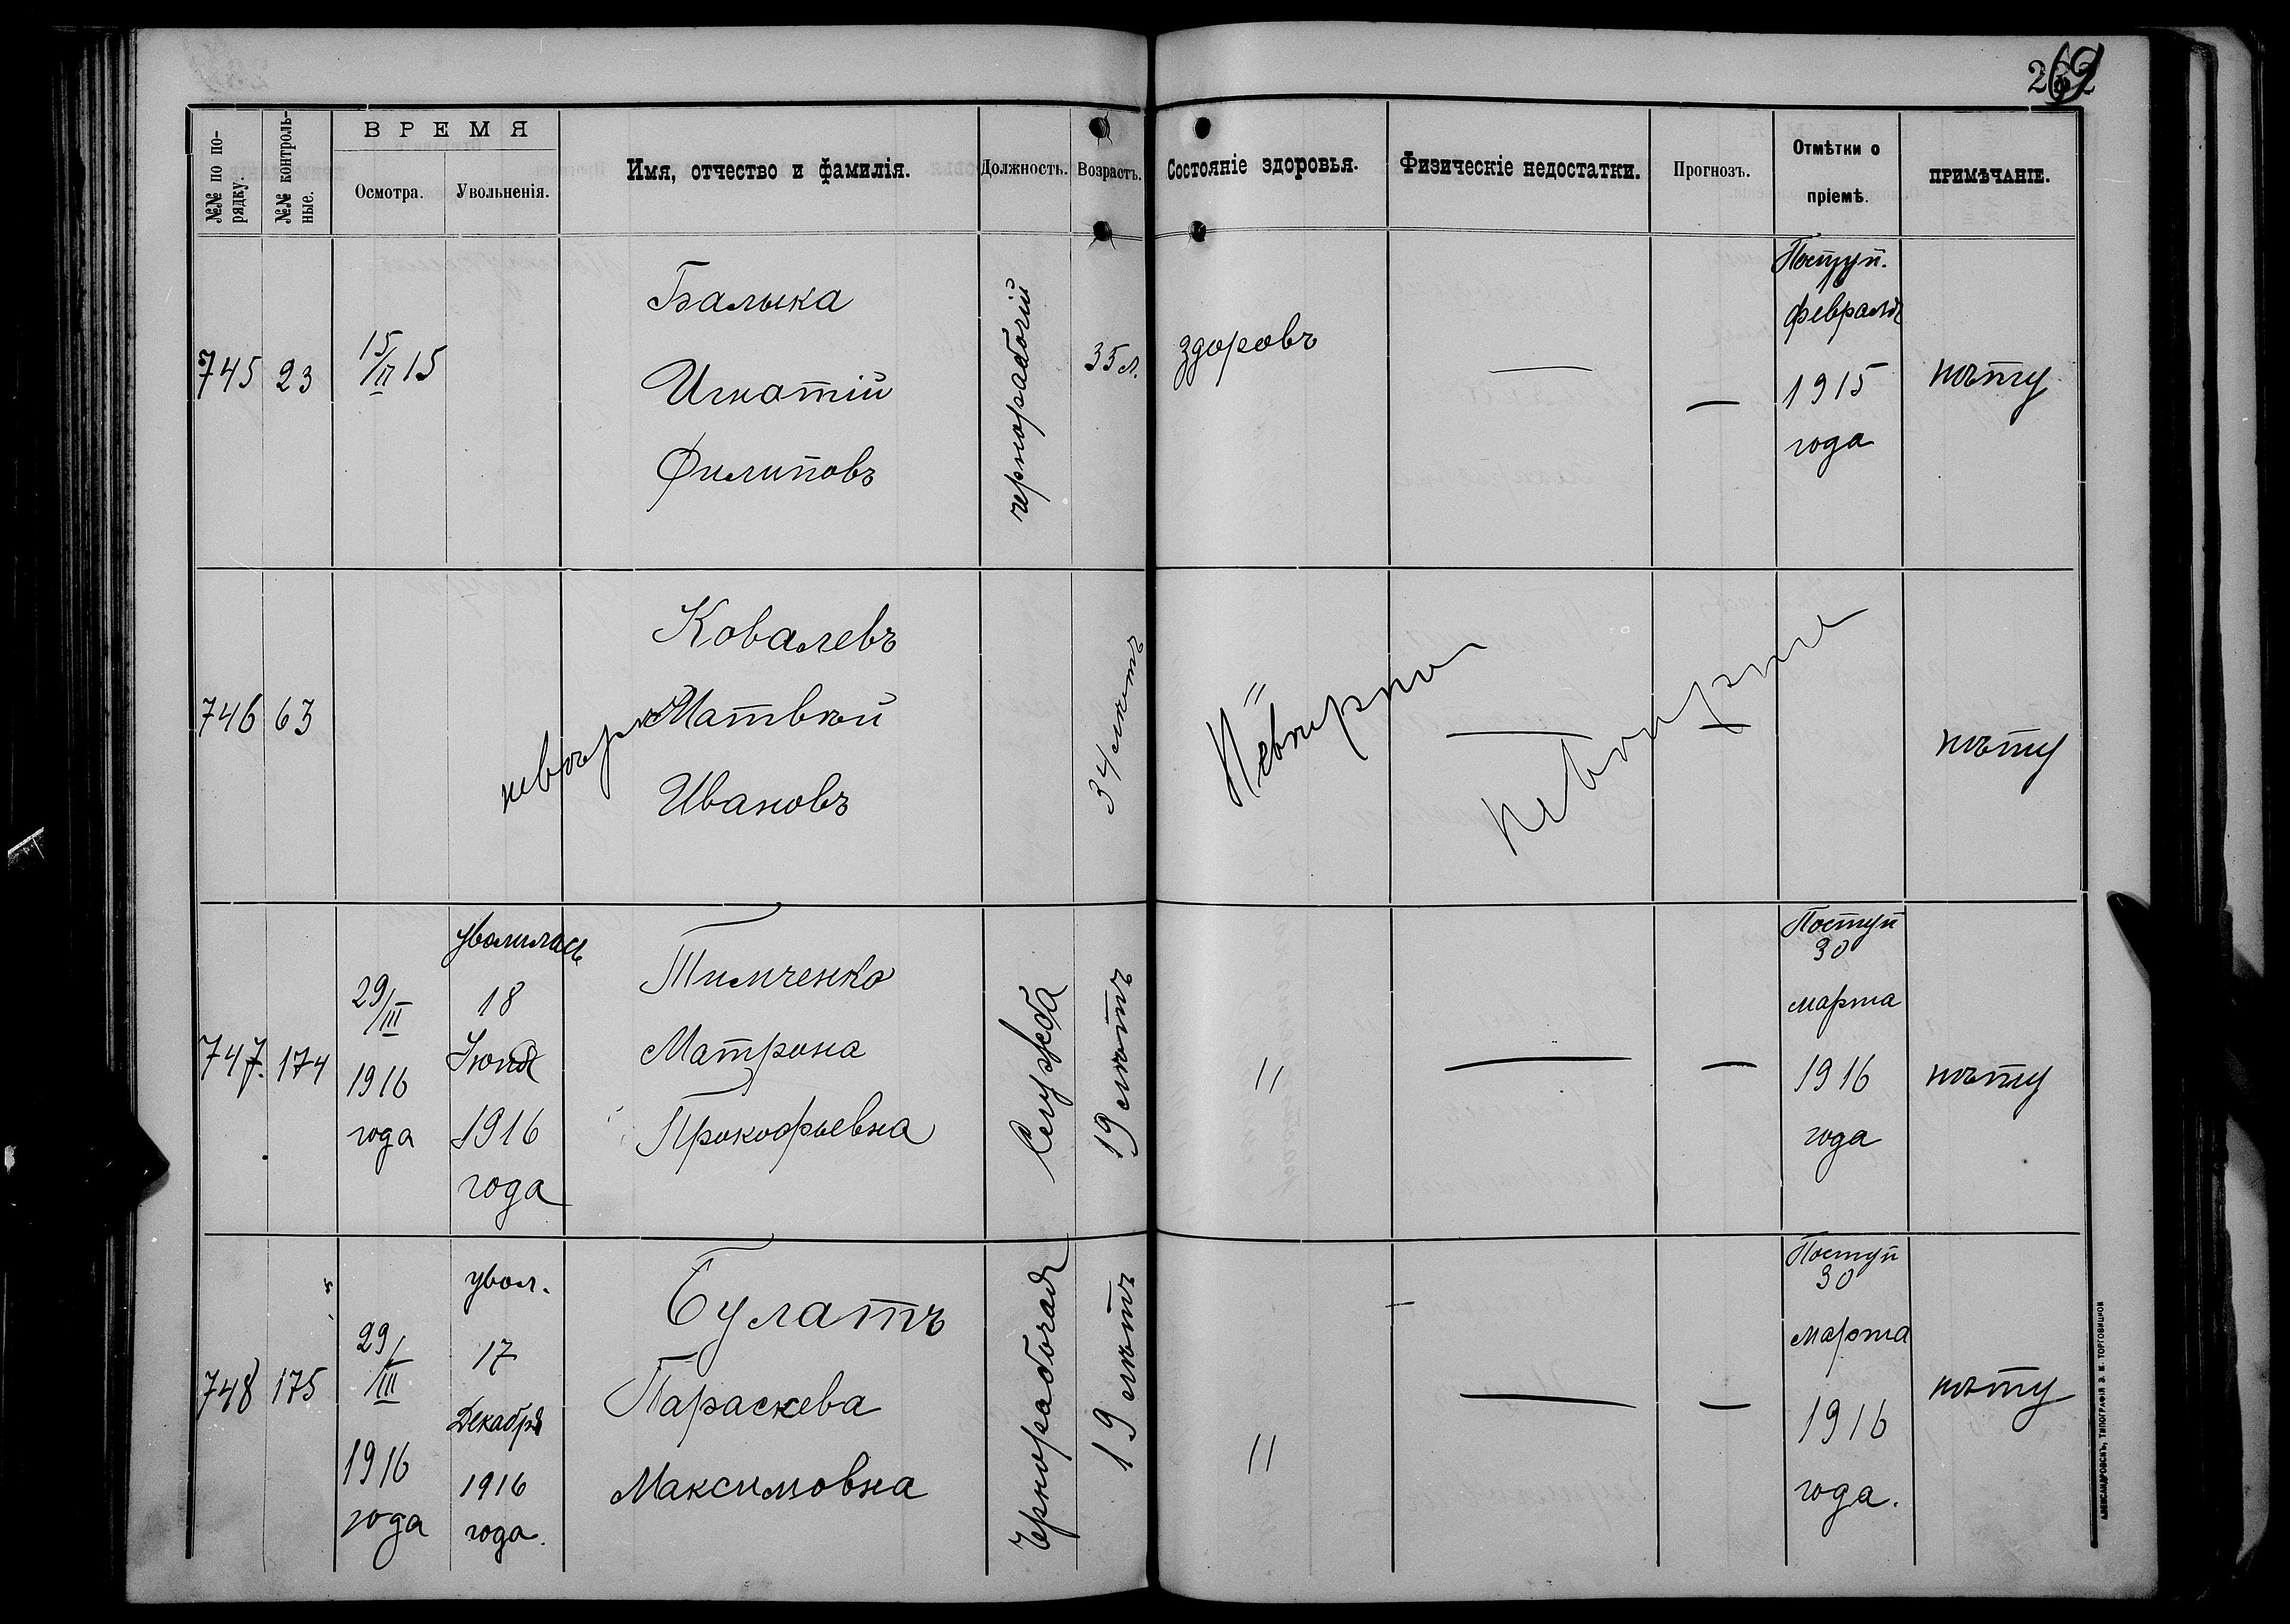 №№ по по-
рядку.
№№ контроль-
ные.
ВРЕМЯ
Осмотра.
Увольненія.
Имя, отчество и фамилія.
Должность.
Возрастъ.
Состояніе здоровья.
Физическіе недостатки.
Прогнозъ.
Отмѣтки о
пріемѣ.
ПРИМѢЧАНІЕ.
745
23
15/II 15
Балыка
Игнатій
Филиповъ
чернорабочій
35 л.
здоровъ
—
—
Поступ.
февраля
1915
года
нѣту
746
63
невѣрно
Ковалевъ
Матвѣй
Ивановъ
34 лѣтъ
Невѣрно
—
—
невѣрно
нѣту
747.
174
29/III
1916
года
уволилась
18
Іюня
1916
года
Тимченко
Матрона
Прокофьевна
Служба
19 лѣтъ
"
—
—
Поступ
30
марта
1916
года
нѣту
748
175
29/III
1916
года
увол.
17
Декабря
1916
года.
Булатъ
Параскева
Максимовна
Чернорабочая
19 лѣтъ
"
—
—
Поступ
30
марта
1916
года.
нѣту
АЛЕКСАНДРОВСКЪ, ТИПОГРАФІЯ Э. И. ТОРГОВИЦКОВ